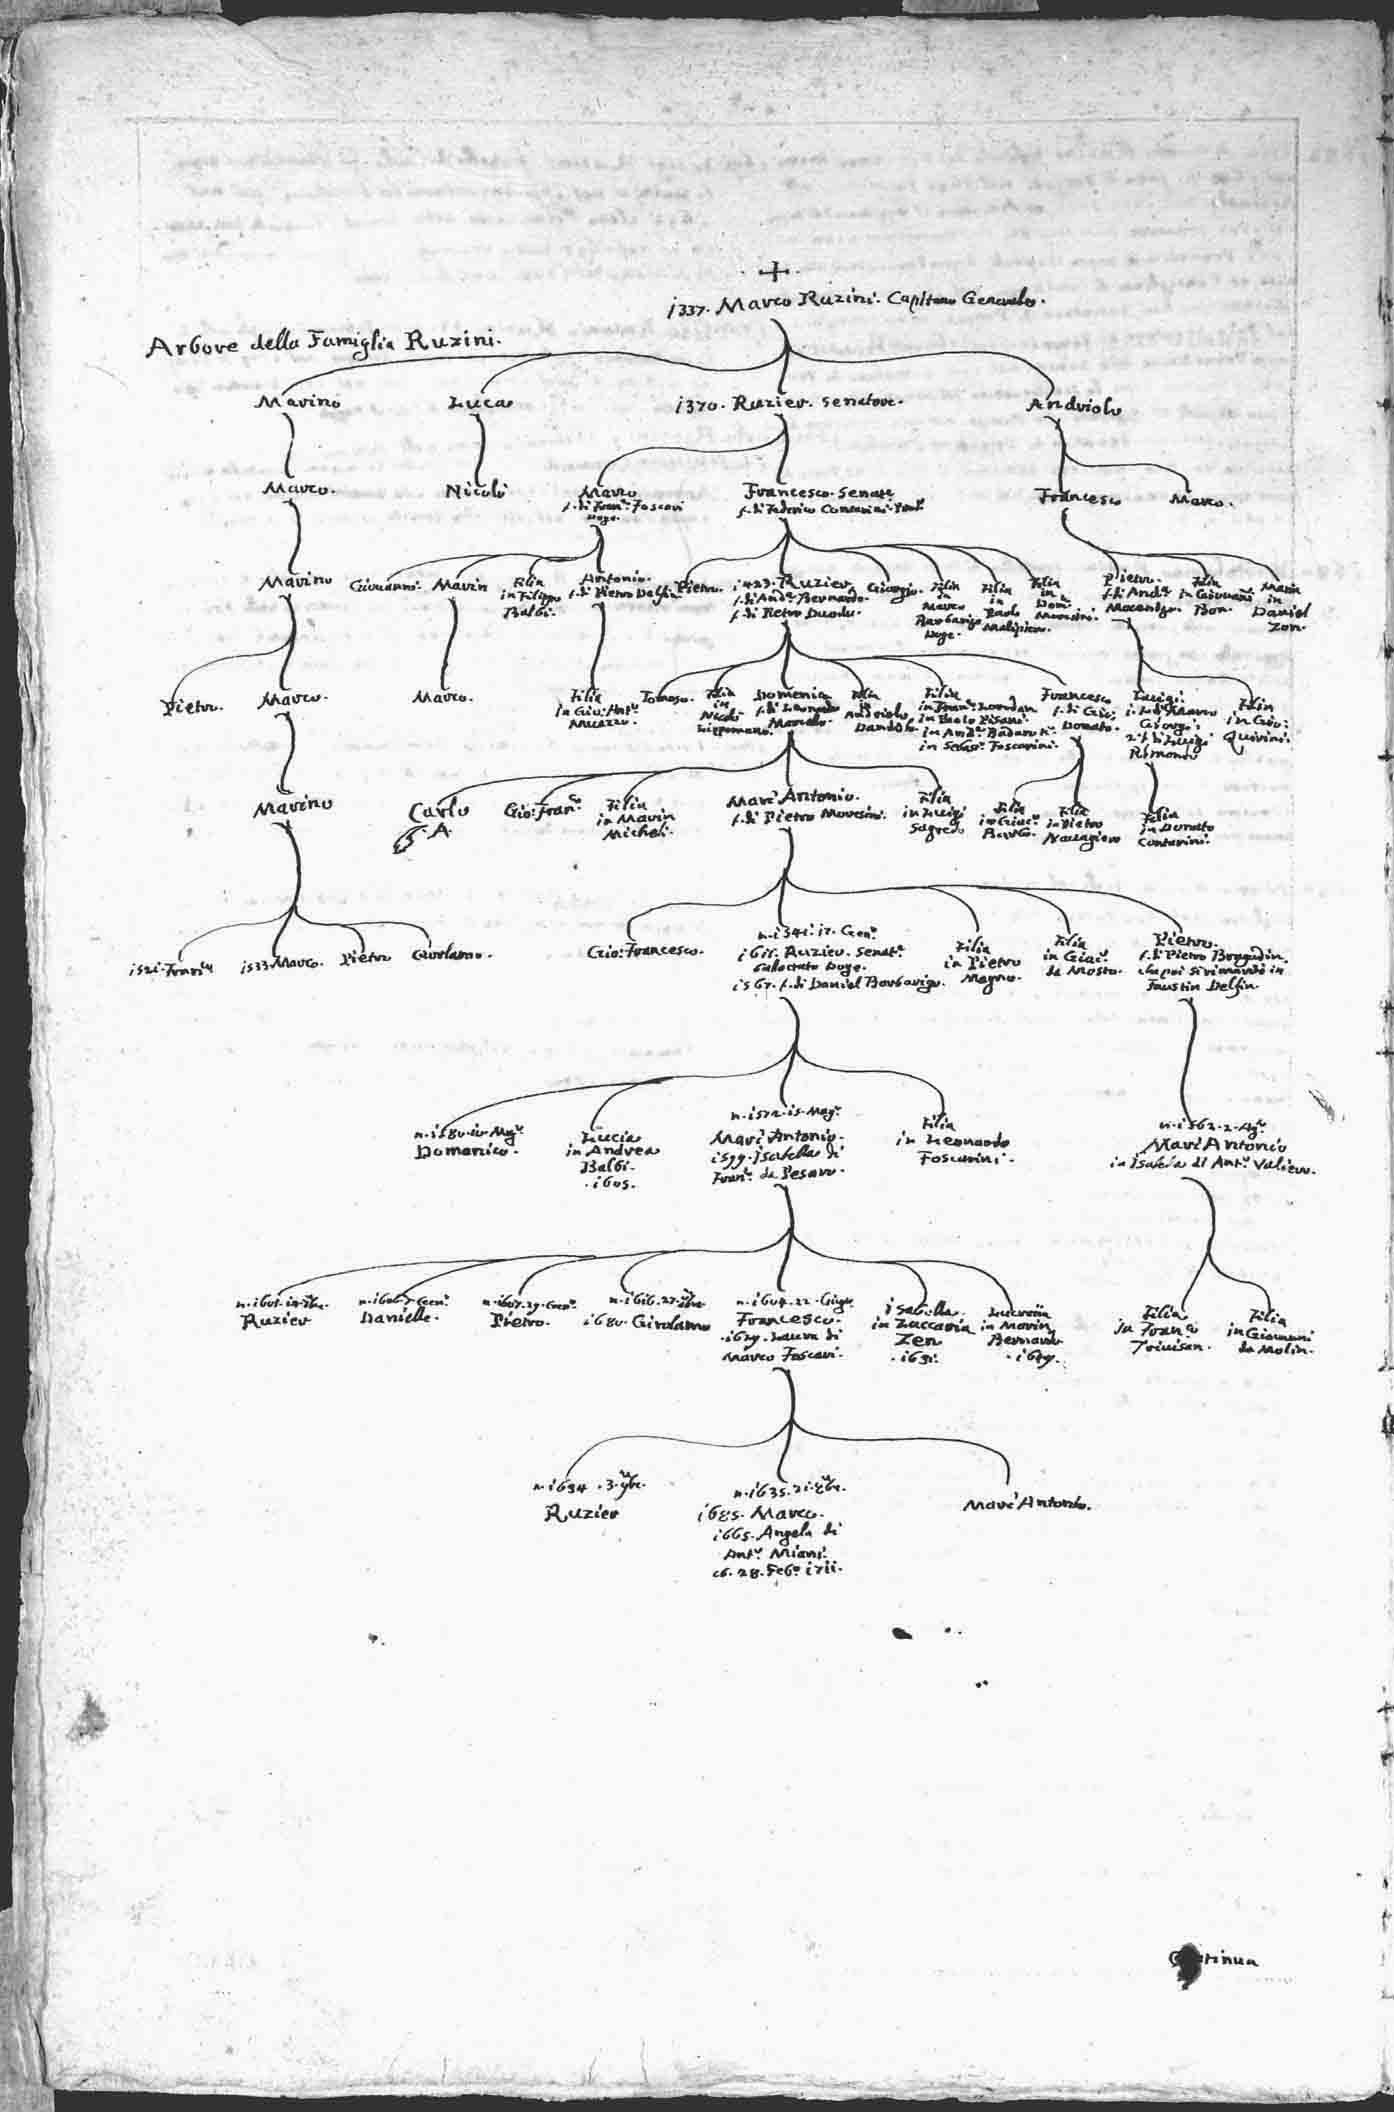 1337. Marco Ruzini. Capitano Generale.
Arbore della Famiglia Ruzini.
Marino
Luca
1370. Ruzier. Senatore.
Andriolo
Marco.
Nicolò
Marco
f. di Franc.º Foscari
Doge.
Francesco. Senatr
f. di Federico Contarini.
Francesco
Marco.
Marino
Giovanni.
Marin
Filia
in Filippo
Balbi.
Antonio.
f. di Pietro Delfin
Pietro.
1423. Ruzier
f. di And.ª Bernardo.
f. di Pietro Duodo.
Giorgio.
Filia
in
Marco
Barbarigo
Doge.
Filia
in
Paolo
Malipiero.
Filia
in
Dom.º
Morosini.
Pietro.
f. di And.ª
Mocenigo.
Filia
in Giovanni
Bon.
Maria
in
Daniel
Zon.
Pietro.
Marco.
Marco.
Filia
in Gio: Ant.º
Tomaso.
Filia
in
Nicolò
Lippomano.
Domenico
f. di Leonardo
Marcello.
Filia
in
Andriolo
Dandolo.
Filia
in Fran.º Loredan
in Paolo Pisani.
in And.ª Badoaro K.r
in Sebast.º Foscarini.
Francesco
f. di Gio:
Donato.
Luigi.
1. f. di Marco
Giorgi.
2. f. di Luigi
Rimondo
Filia
in Gio:
Quirini.
Marino
Carlo
A.
Gio: Fran.co
Filia
in Marin
Micheli.
Marc'Antonio.
f. di Pietro Morosini.
Filia
in Luigi
Sagredo
Filia
in Giac.º
Barbo.
Filia
in Pietro
Navagiero
Filia
in Donato
Contarini.
1521. Franc.º
1533. Marco.
Pietro
Girolamo.
Gio: Francesco.
n. 1541. 17. Gen.º
1611. Ruzier. Senat.r
Ballottato Doge.
1567. f. di Daniel Barbarigo.
Filia
in Pietro
Magno.
Filia
in Giac.º
da Mosto.
Pietro.
f. di Pietro Bragadin.
che poi si rimaritò in
Faustin Delfin.
n. 1580. 10. Mag.º
Domenico.
Lucia
in Andrea
Balbi.
1605.
n. 1572. 15. Mag.º
Marc'Antonio.
1599. Isabella di
Fran.º da Pesaro.
Filia
in Leonardo
Foscarini.
n. 1562. 2. Ag.º
Marc'Antonio
in Isabela di Ant.º Valiero.
n. 1601. 14. 7bre.
Ruzier
n. 1606. 7. Gen.º
Danielle.
n. 1607. 29. Gen.º
Pietro.
n. 1616. 27. 7bre
1680. Girolamo
n. 1604. 22. Giug.
Francesco.
1629. Laura di
Marco Foscari.
Isabella.
in Zuccaria
Zen
1631.
Lucretia
in Marin
Bernardo
Filia
in Franc.º
Trivisan.
Filia
in Giovanni
da Molin.
n. 1634. 3. 9bre.
Ruzier
n. 1635. 21. 8bre.
1685. Marco.
1665. Angela di
Ant.º Miani.
ob. 28. Feb.º 1711.
Marc'Antonio.